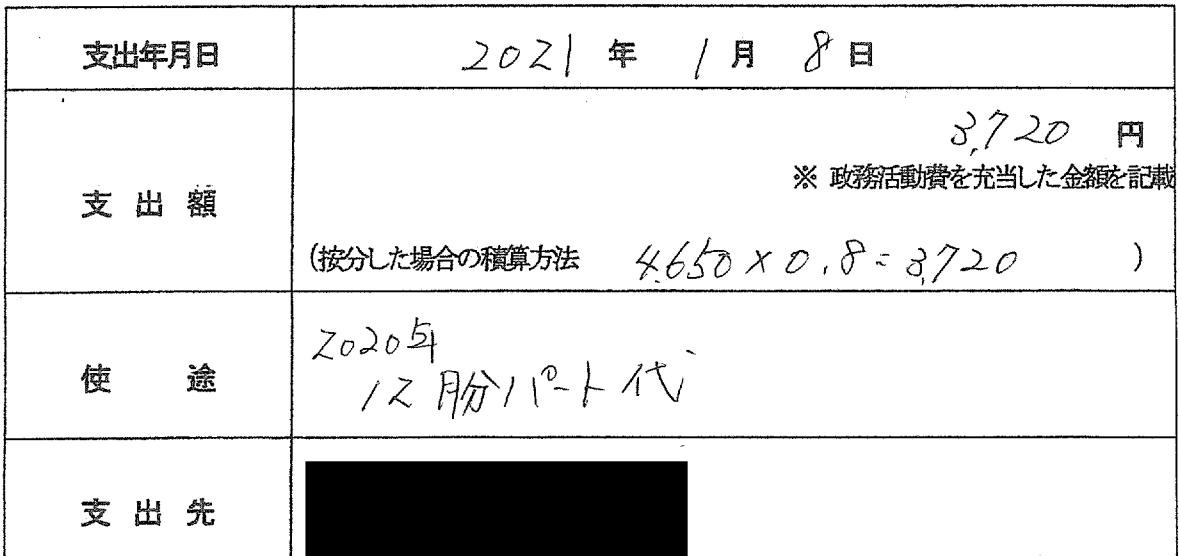 支出年月日 2021 年 1 月 8 日
3,720 円
※ 政務活動費を充当した金額を記載
支 出 額
(按分した場合の積算方法 4,650 × 0.8 = 3,720 )
2020年
使 途
12月分パート代
支 出 先